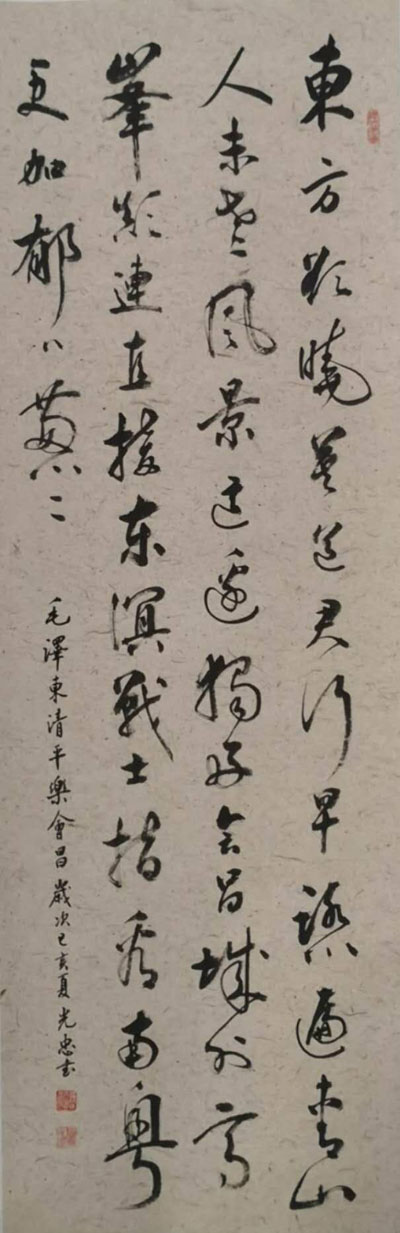 東方欲曉莫道君行早踏遍青山
人未老風景这邊獨好会昌城外高
峯顛連直接东溟戰士指看南粵
更加郁〻葱〻
毛澤東清平樂會昌歲次己亥夏光忠书